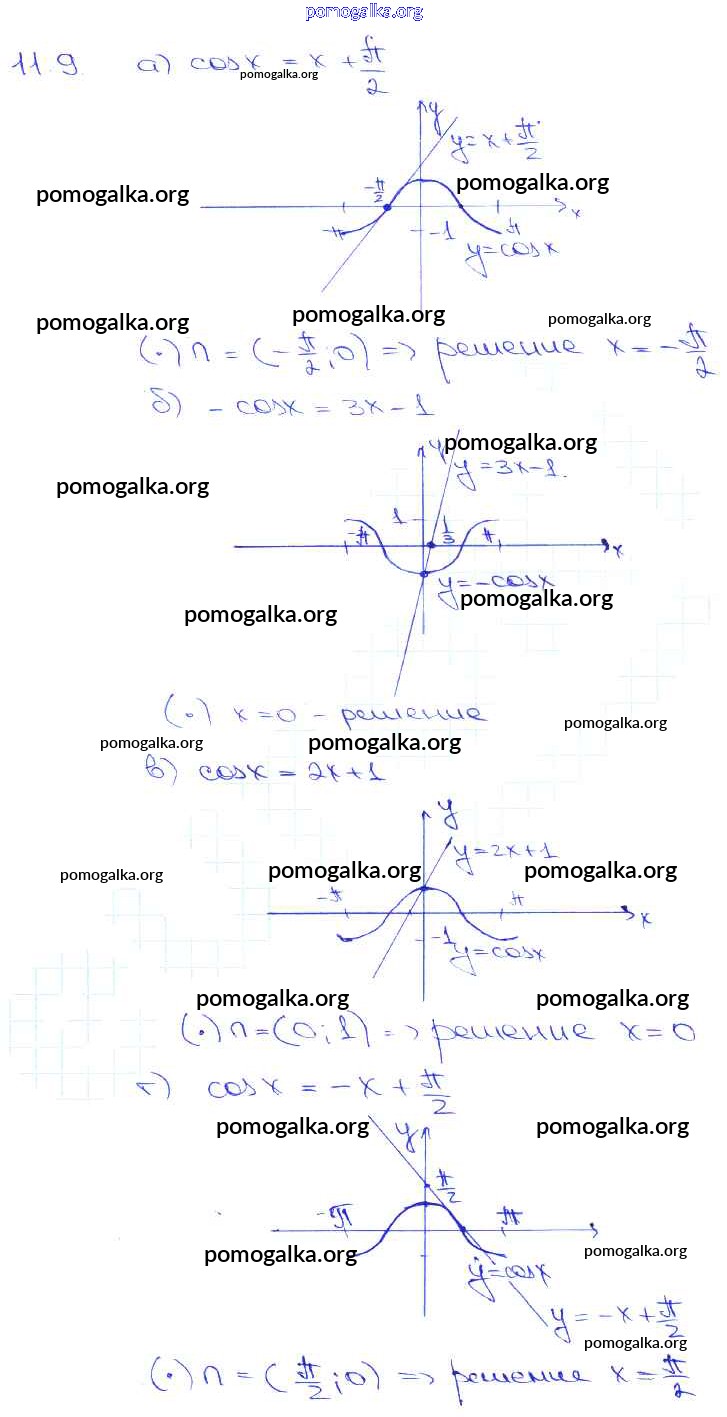 pomogalka.org
11.9. а) cosx = x + π/2
pomogalka.org
y
y = x + π/2
pomogalka.org
-π/2
pomogalka.org
x
-π
-1
π
y = cosx
pomogalka.org
pomogalka.org
pomogalka.org
(·) п = (-π/2; 0) => решение x = -π/2
б) - cosx = 3x - 1
y
pomogalka.org
y = 3x-1.
pomogalka.org
1
1/3
-π
π
x
y = -cosx
pomogalka.org
pomogalka.org
(·) x = 0 - решение
pomogalka.org
pomogalka.org
pomogalka.org
в) cosx = 2x + 1
y
y = 2x+1
pomogalka.org
pomogalka.org
pomogalka.org
-π
π
x
-1
y = cosx
pomogalka.org
pomogalka.org
(·) п = (0; 1) => решение x = 0
г) cosx = -x + π/2
pomogalka.org
y
pomogalka.org
π/2
-π
π
pomogalka.org
pomogalka.org
y = cosx
y = -x + π/2
pomogalka.org
(·) п = (π/2; 0) => решение x = π/2